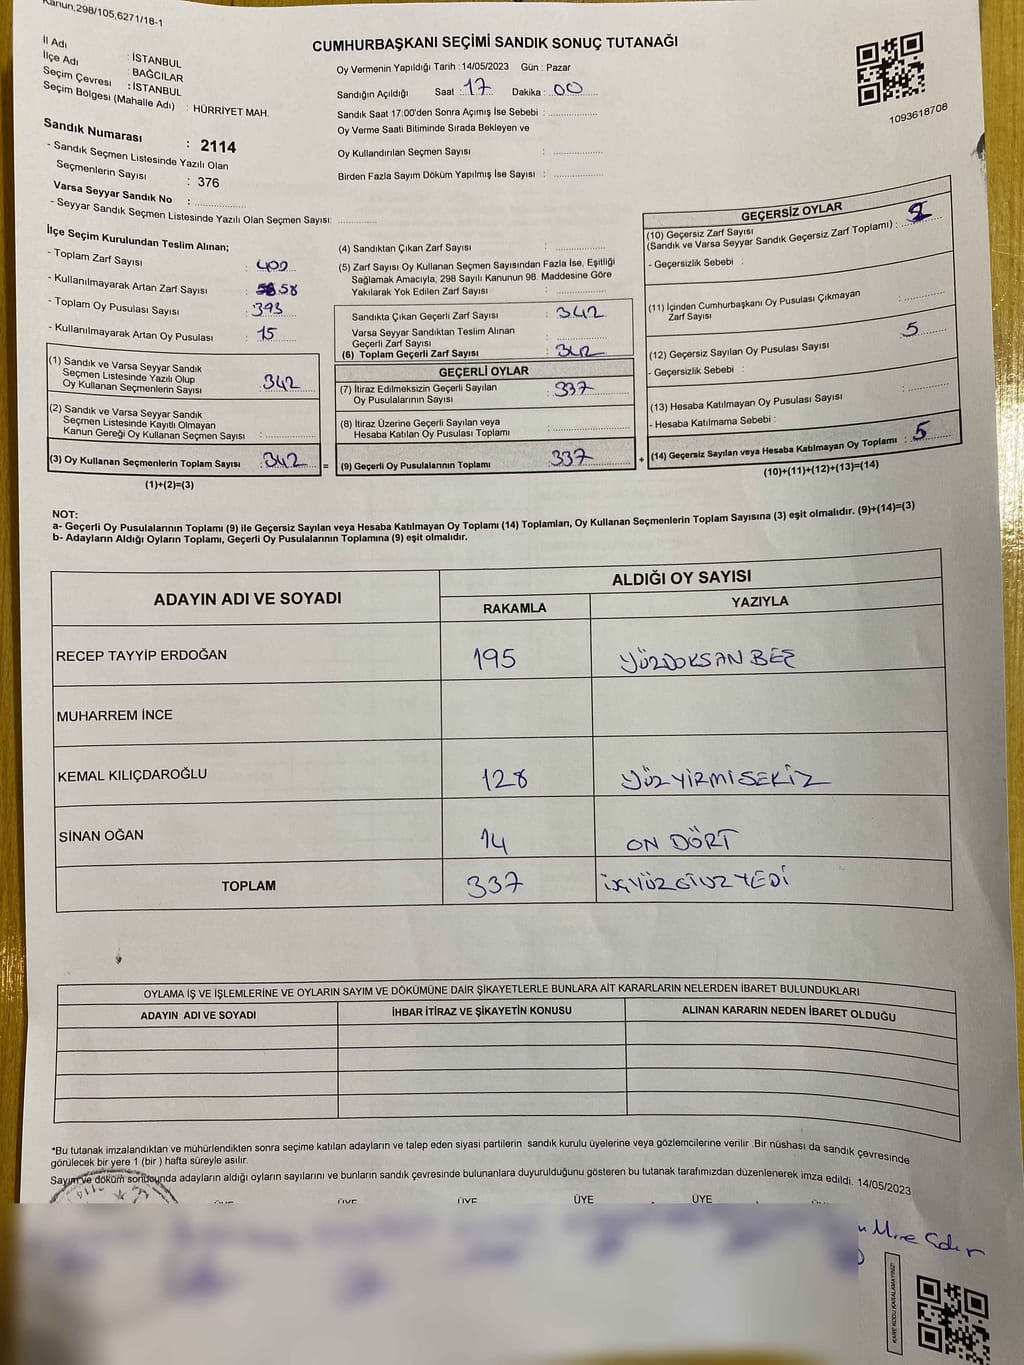 Kanun;298/105,6271/18-1
CUMHURBAŞKANI SEÇİMİ SANDIK SONUÇ TUTANAĞI
İl Adı : İSTANBUL
İlçe Adı : BAĞCILAR
Seçim Çevresi : İSTANBUL
Seçim Bölgesi (Mahalle Adı) : HÜRRİYET MAH.
Sandık Numarası : 2114
- Sandık Seçmen Listesinde Yazılı Olan
Seçmenlerin Sayısı : 376
Varsa Seyyar Sandık No :
- Seyyar Sandık Seçmen Listesinde Yazılı Olan Seçmen Sayısı:
Oy Vermenin Yapıldığı Tarih : 14/05/2023 Gün : Pazar
Sandığın Açıldığı Saat : 17 Dakika : 00
Sandık Saat 17:00'den Sonra Açımış İse Sebebi :
Oy Verme Saati Bitiminde Sırada Bekleyen ve
Oy Kullandırılan Seçmen Sayısı :
Birden Fazla Sayım Döküm Yapılmış İse Sayısı :
1093618708
İlçe Seçim Kurulundan Teslim Alınan;
- Toplam Zarf Sayısı : 400
- Kullanılmayarak Artan Zarf Sayısı : 58
- Toplam Oy Pusulası Sayısı : 393
- Kullanılmayarak Artan Oy Pusulası : 15
(1) Sandık ve Varsa Seyyar Sandık
Seçmen Listesinde Yazılı Olup
Oy Kullanan Seçmenlerin Sayısı : 342
(2) Sandık ve Varsa Seyyar Sandık
Seçmen Listesinde Kayıtlı Olmayan
Kanun Gereği Oy Kullanan Seçmen Sayısı :
(3) Oy Kullanan Seçmenlerin Toplam Sayısı : 342 =
(1)+(2)=(3)
(4) Sandıktan Çıkan Zarf Sayısı :
(5) Zarf Sayısı Oy Kullanan Seçmen Sayısından Fazla İse, Eşitliği
Sağlamak Amacıyla, 298 Sayılı Kanunun 98. Maddesine Göre
Yakılarak Yok Edilen Zarf Sayısı :
Sandıkta Çıkan Geçerli Zarf Sayısı : 342
Varsa Seyyar Sandıktan Teslim Alınan
Geçerli Zarf Sayısı :
(6) Toplam Geçerli Zarf Sayısı : 342
GEÇERLİ OYLAR
(7) İtiraz Edilmeksizin Geçerli Sayılan
Oy Pusulalarının Sayısı : 337
(8) İtiraz Üzerine Geçerli Sayılan veya
Hesaba Katılan Oy Pusulası Toplamı :
(9) Geçerli Oy Pusulalarının Toplamı : 337 +
GEÇERSİZ OYLAR
(10) Geçersiz Zarf Sayısı
(Sandık ve Varsa Seyyar Sandık Geçersiz Zarf Toplamı) :
- Geçersizlik Sebebi :
(11) İçinden Cumhurbaşkanı Oy Pusulası Çıkmayan
Zarf Sayısı :
(12) Geçersiz Sayılan Oy Pusulası Sayısı : 5
- Geçersizlik Sebebi :
(13) Hesaba Katılmayan Oy Pusulası Sayısı :
- Hesaba Katılmama Sebebi :
(14) Geçersiz Sayılan veya Hesaba Katılmayan Oy Toplamı : 5
(10)+(11)+(12)+(13)=(14)
NOT:
a- Geçerli Oy Pusulalarının Toplamı (9) ile Geçersiz Sayılan veya Hesaba Katılmayan Oy Toplamı (14) Toplamları, Oy Kullanan Seçmenlerin Toplam Sayısına (3) eşit olmalıdır. (9)+(14)=(3)
b- Adayların Aldığı Oyların Toplamı, Geçerli Oy Pusulalarının Toplamına (9) eşit olmalıdır.
ADAYIN ADI VE SOYADI ALDIĞI OY SAYISI
RAKAMLA YAZIYLA
RECEP TAYYİP ERDOĞAN 195 YÜZDOKSAN BEŞ
MUHARREM İNCE
KEMAL KILIÇDAROĞLU 128 YÜZYİRMİSEKİZ
SİNAN OĞAN 14 ON DÖRT
TOPLAM 337 ÜÇYÜZOTUZYEDİ
OYLAMA İŞ VE İŞLEMLERİNE VE OYLARIN SAYIM VE DÖKÜMÜNE DAİR ŞİKAYETLERLE BUNLARA AİT KARARLARIN NELERDEN İBARET BULUNDUKLARI
ADAYIN ADI VE SOYADI İHBAR İTİRAZ VE ŞİKAYETİN KONUSU ALINAN KARARIN NEDEN İBARET OLDUĞU
*Bu tutanak imzalandıktan ve mühürlendikten sonra seçime katılan adayların ve talep eden siyasi partilerin sandık kurulu üyelerine veya gözlemcilerine verilir .Bir nüshası da sandık çevresinde
görülecek bir yere 1 (bir ) hafta süreyle asılır.
Sayım ve döküm sonucunda adayların aldığı oyların sayılarını ve bunların sandık çevresinde bulunanlara duyurulduğunu gösteren bu tutanak tarafımızdan düzenlenerek imza edildi. 14/05/2023
ÜYE ÜYE ÜYE ÜYE ÜYE
KARE KODU KARALAMAYINIZ!